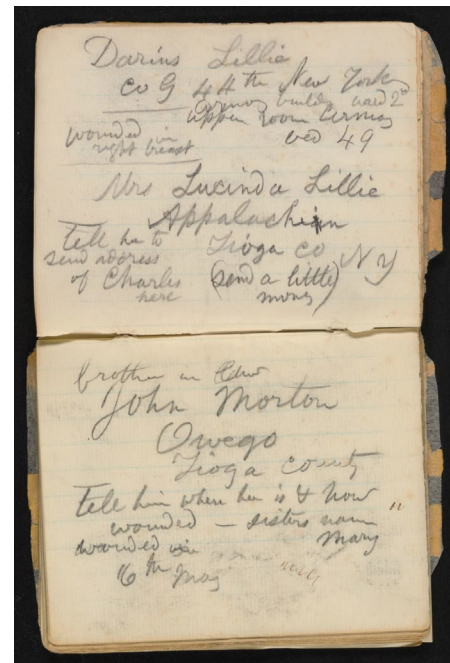 Darius Lillie
Co G 44th New York
Armory build ward 2d
upper room Armory
bed 49
wounded in
right breast
Mrs Lucinda Lillie
Appalachian
Tioga co N Y
tell her to
send address
of Charles
here
(send a little)
money
brother in law
John Morton
Owego
Tioga county
tell him where he is & how
wounded — sisters name
Mary
wounded
6th May